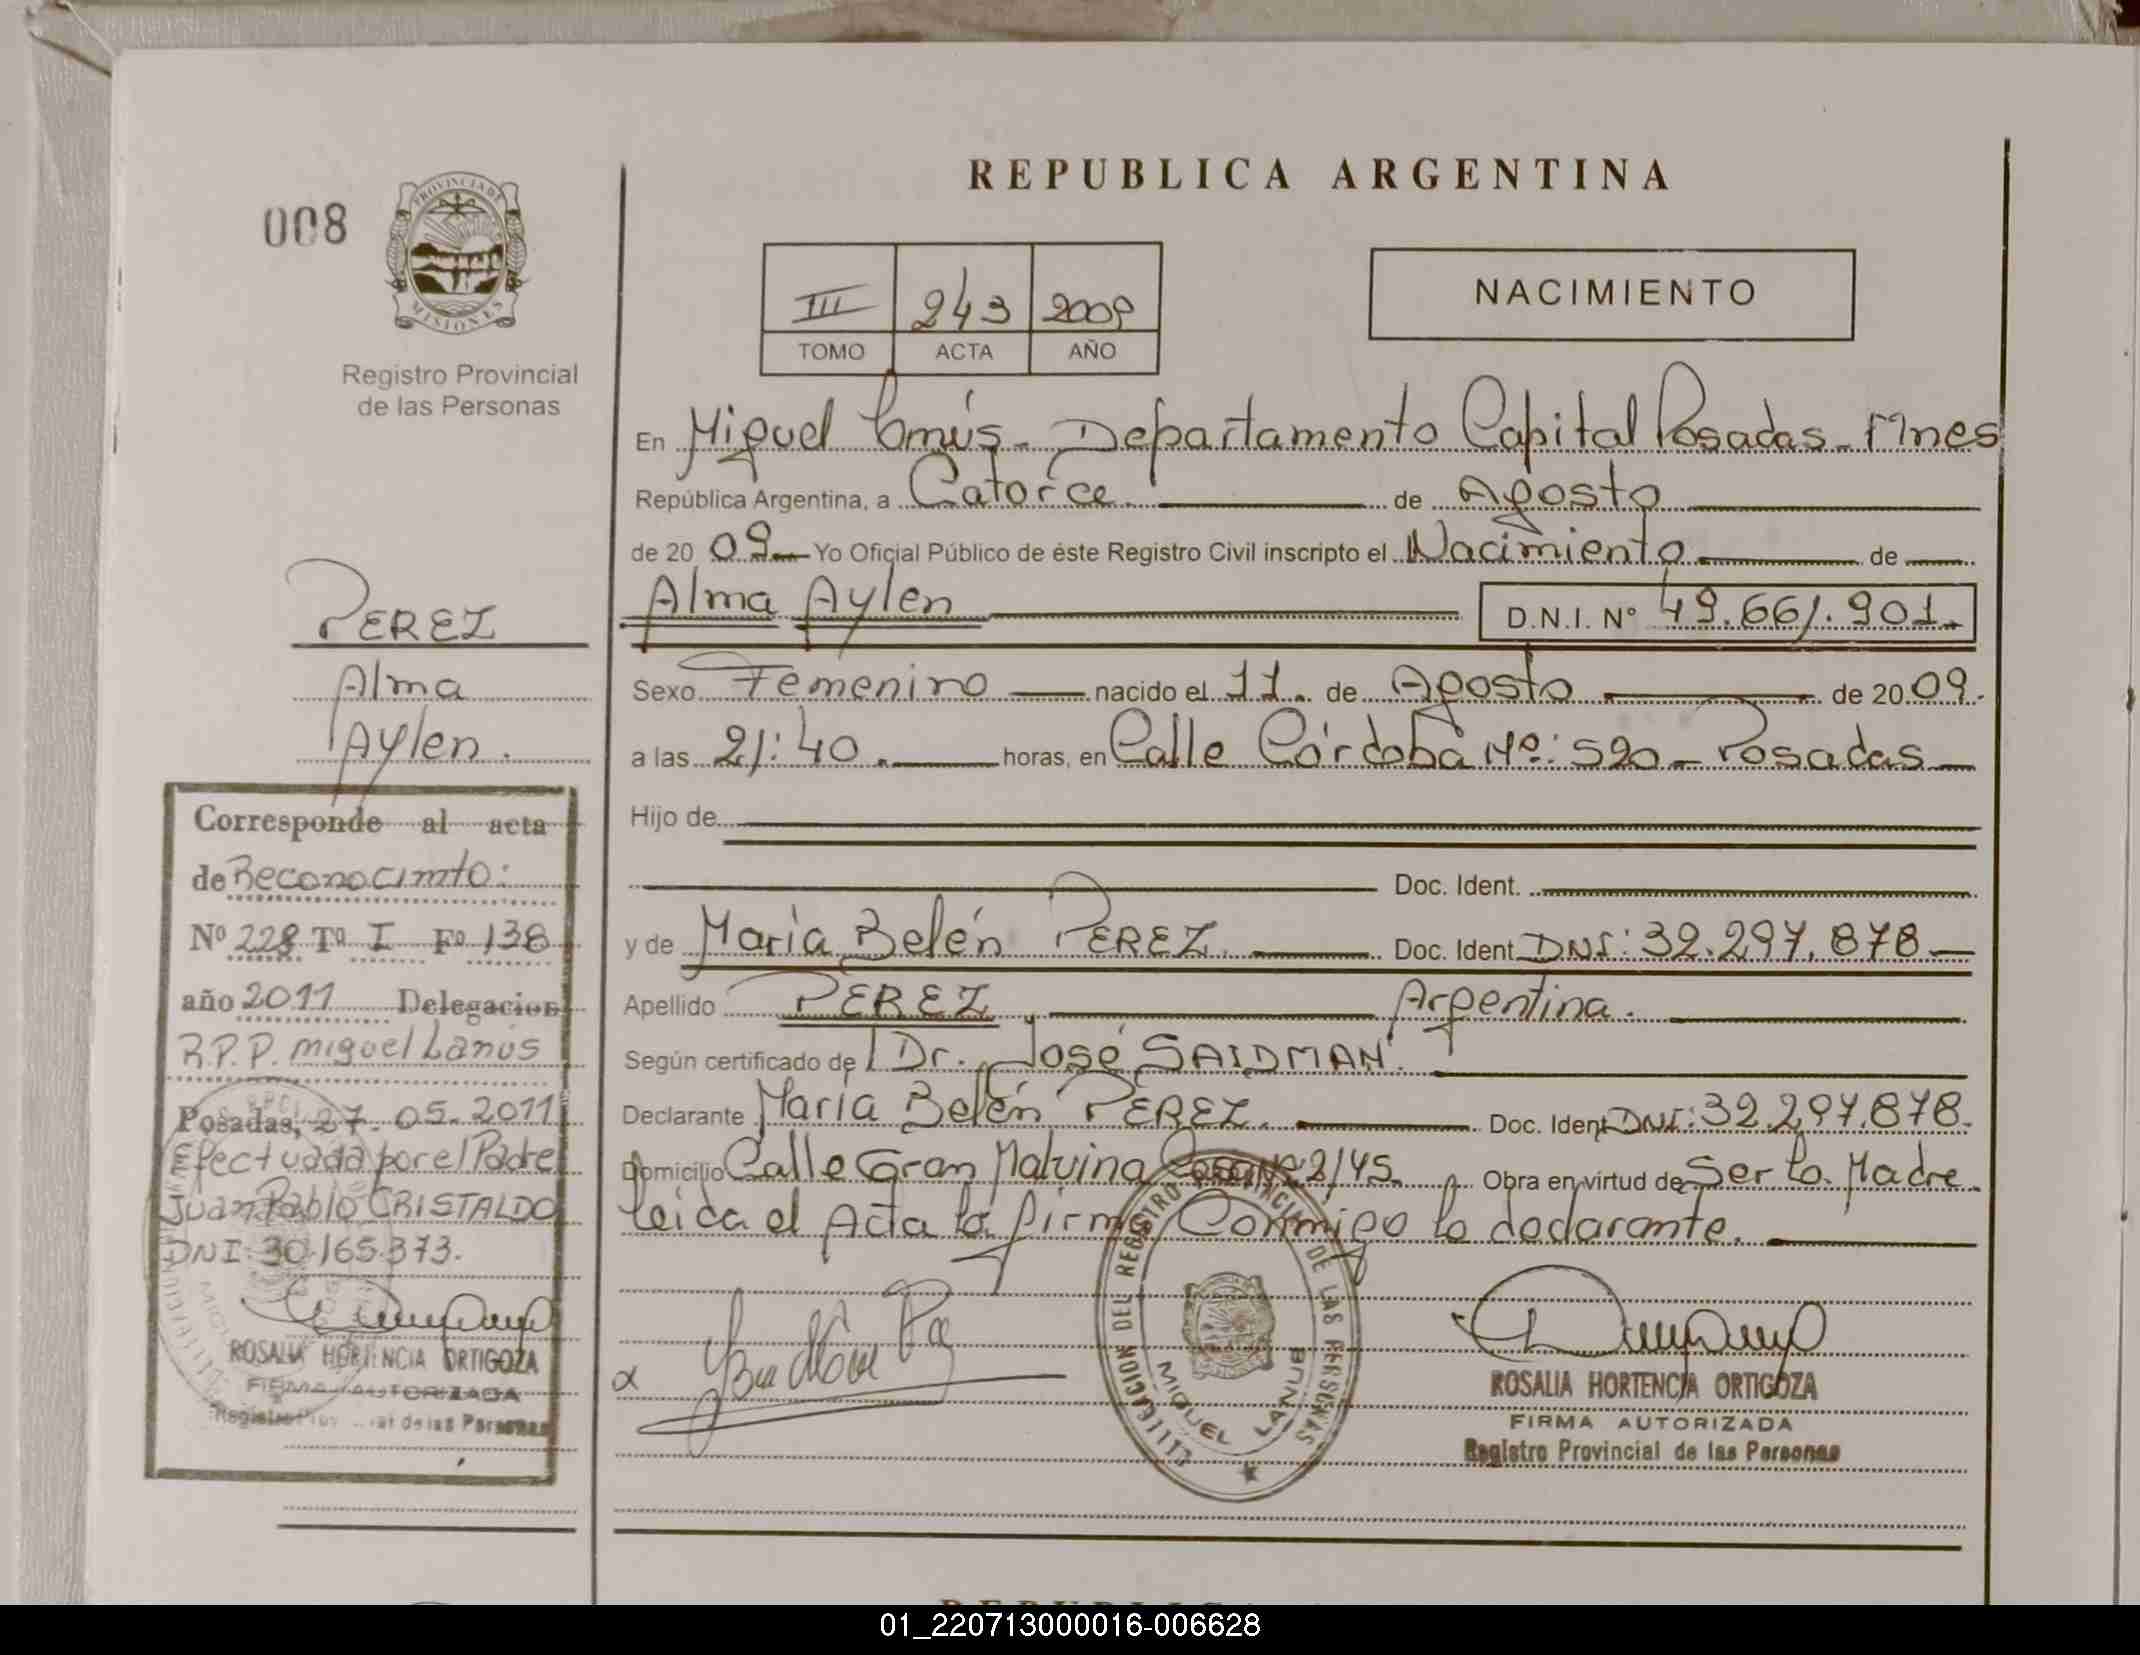 REPUBLICA ARGENTINA
008
PROVINCIA DE
MISIONES
Registro Provincial
de las Personas
NACIMIENTO
III 243 2009
TOMO ACTA AÑO
En Miguel Lanús - Departamento Capital Posadas - Mnes
República Argentina, a Catorce. de Agosto
de 20 09 Yo Oficial Público de éste Registro Civil inscripto el Nacimiento de
Alma Aylen D.N.I. Nº 49.661.901.
Sexo Femenino nacido el 11. de Agosto de 20 09.
a las 21:40. horas, en Calle Córdoba Nº: 520 - Posadas
Hijo de
Doc. Ident.
y de María Belén PEREZ. Doc. Ident. DNI: 32.297.878
Apellido PEREZ Argentina.
Según certificado de Dr. José SAIDMAN.
Declarante María Belén PEREZ. Doc. Ident. DNI: 32.297.878.
Domicilio Calle Gran Malvina Nº 2145. Obra en virtud de Ser la Madre
leída el Acta la firma Conmigo la declarante.
ROSALIA HORTENCIA ORTIGOZA
FIRMA AUTORIZADA
Registro Provincial de las Personas
DELEGACION DEL REGISTRO PROVINCIAL DE LAS PERSONAS
MIGUEL LANUS
PEREZ
Alma
Aylen.
Corresponde al acta
de Reconocimto:
Nº 228 Tº I Fº 138
año 2011 Delegacion
R.P.P. Miguel Lanús
Posadas, 27.05.2011
Efectuada por el Padre
Juan Pablo CRISTALDO
DNI: 30.165.373.
ROSALIA HORTENCIA ORTIGOZA
FIRMA AUTORIZADA
Registro Provincial de las Personas
01_220713000016-006628